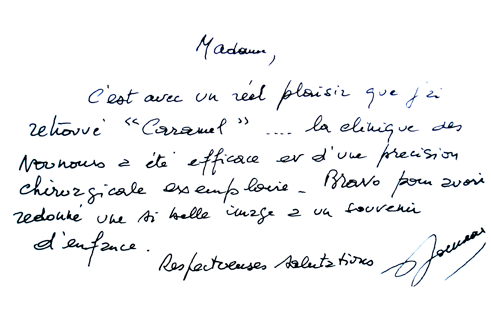 Madame,
C'est avec un réel plaisir que j'ai
retrouvé "Caramel" .... la clinique des
Nounours a été efficace et d'une precision
chirurgicale exemplaire - Bravo pour avoir
redonné une si belle image a un souvenir
d'enfance.
Respectueuses salutations